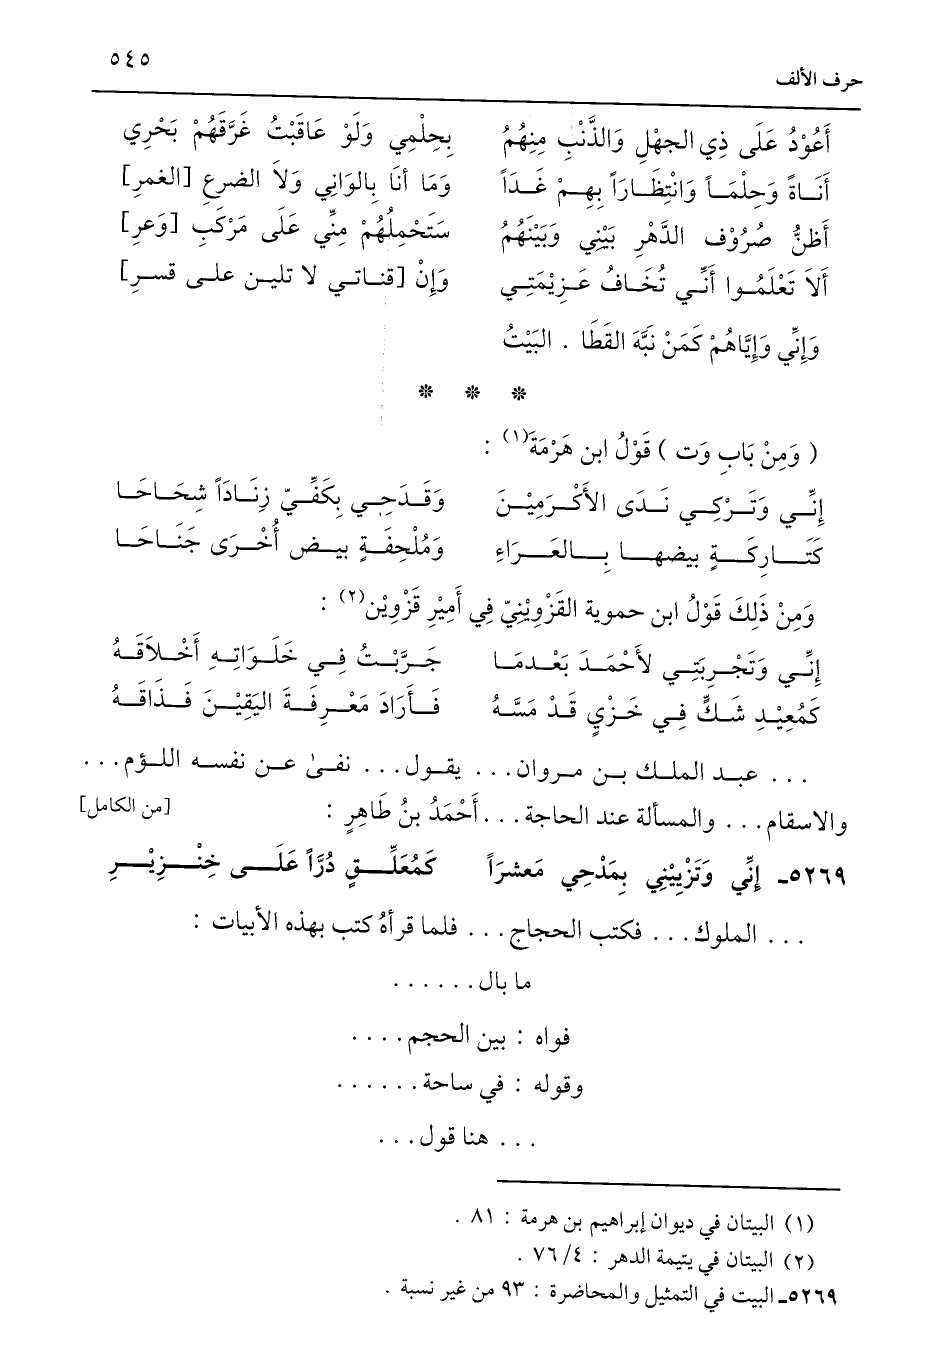 ٥٤٥
حرف الألف
أَعُوْدُ عَلَى ذِي الجهْلِ وَالذَّنْبِ مِنْهُمُ بِحِلْمِي وَلَوْ عَاقَبْتُ غَرَّقَهُمْ بَحْرِي
أَنَاةً وَحِلْمَاً وَانْتِظَارَاً بِهِمْ غَدَاً وَمَا أَنَا بِالوَانِي وَلاَ الضرعِ [الغمرِ]
أَظنُّ صُرُوْف الدَّهْرِ بَيْنِي وَبَيْنَهُمُ سَتَحْمِلُهُمْ مِنِّي عَلَى مَرْكَبٍ [وَعرِ]
أَلاَ تَعْلَمُوا أَنَّي تُخَافُ عَزِيْمَتِي وَإِنْ [قناتي لا تلين على قسرِ]
وَإِنِّي وَإِيَّاهُمْ كَمَنْ نَبَّهَ القَطَا . البَيْتُ
* * *
( وَمِنْ بَابِ وَت ) قَوْلُ ابن هَرْمَةَ(١) :
إِنِّي وَتَرْكِي نَدَى الأَكْرَمِيْنَ وَقَدَحِي بِكَفِّيّ زِنَادَاً شِحَاحَا
كَتَارِكَةٍ بيضها بِالعَرَاءِ وَمُلْحِفَةٍ بيضِ أُخْرَى جَنَاحَا
وَمِنْ ذَلِكَ قَوْلُ ابن حموية القَزْوِيْنِيّ فِي أَمِيْرِ قَزْوِيْن(٢) :
إِنِّي وَتَجْرِبَتِي لأَحْمَدَ بَعْدمَا جَرَّبْتُ فِي خَلَوَاتِهِ أَخْلاَقَهُ
كَمُعِيْدِ شَكٍّ فِي خَزْيٍ قَدْ مَسَّهُ فَأَرَادَ مَعْرِفَةَ اليَقِيْنَ فَذَاقَهُ
... عبد الملك بن مروان... يقول... نفىٰ عن نفسه اللؤم...
والاسقام... والمسألة عند الحاجة ...أَحْمَدُ بنُ طَاهِرٍ : [من الكامل]
٥٢٦٩ـ إِنِّي وَتَزْيِيْنِي بِمَدْحِي مَعشرَاً كَمُعَلِّقٍ دُرَّاً عَلَى خِنْزِيْرِ
... الملوك... فكتب الحجاج... فلما قرأهُ كتب بهذه الأبيات :
ما بال......
فواه : بين الحجم....
وقوله : في ساحة......
... هنا قول...
(١) البيتان في ديوان إبراهيم بن هرمة : ٨١ .
(٢) البيتان في يتيمة الدهر : ٤/ ٧٦ .
٥٢٦٩ـ البيت في التمثيل والمحاضرة : ٩٣ من غير نسبة .